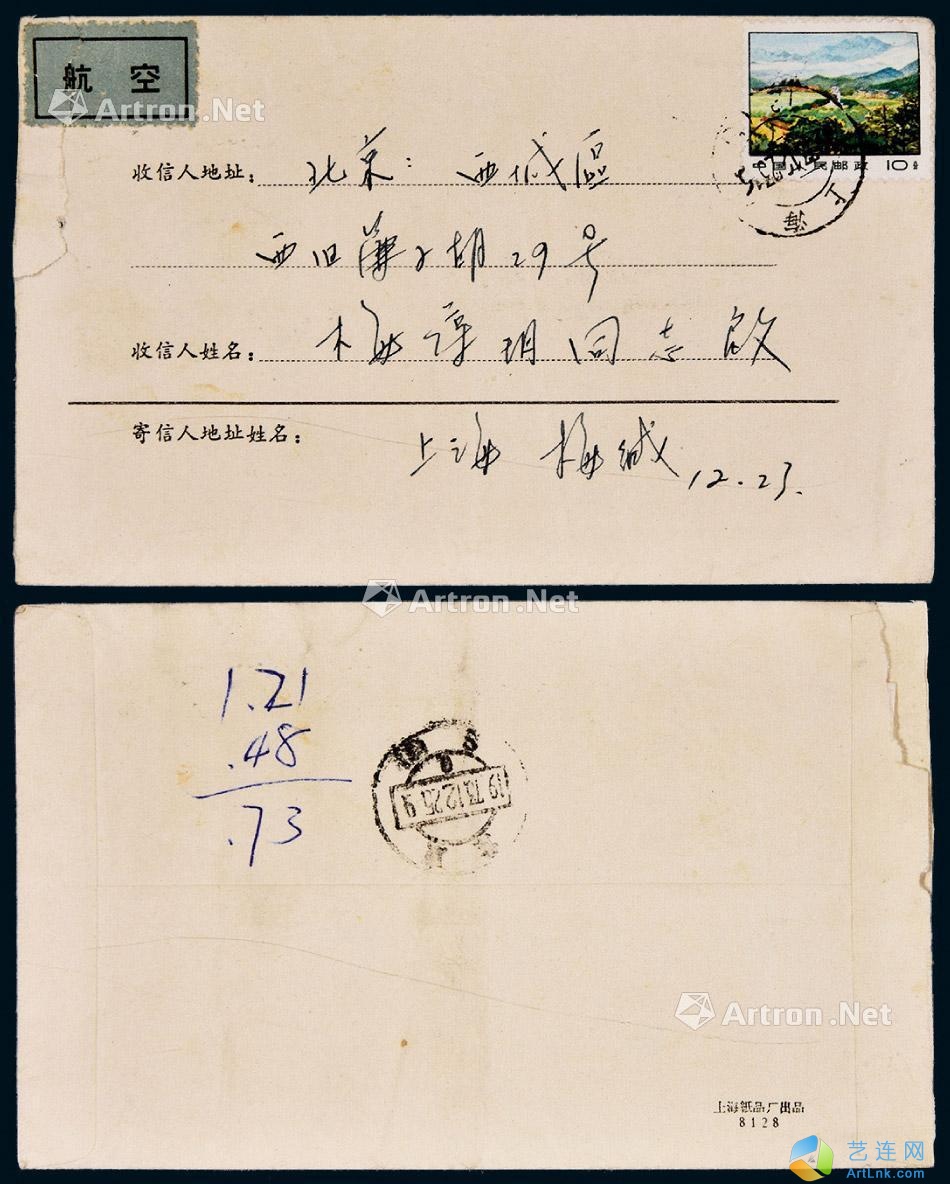 航 空
Artron.Net
中国人民邮政 10分
收信人地址: 北京: 西城區
西旧簾子胡29号
上海
收信人姓名: 梅葆玥同志啟
寄信人地址姓名: 上海 梅
12.23.
Artron.Net
1.21
.48
.73
1973.12.25.9
Artron.Net
上海纸品厂出品
8128
艺连网
ArtLnk.com